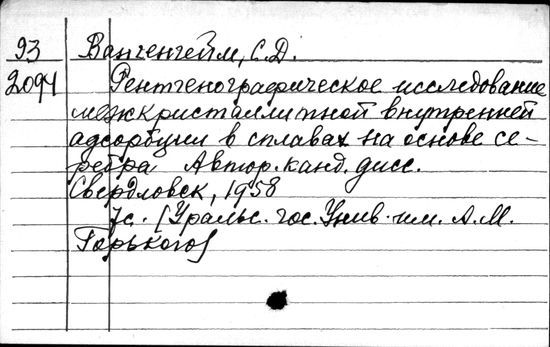 93 Вангенгейм, С.Д.
2094 Рентгенографическое исследование
межкристаллитной внутренней
адсорбции в сплавах на основе се-
ребра Автор. канд. дисс.
Свердловск, 1958
7с. [Уральс. гос. Унив. им. А.М.
Горького]